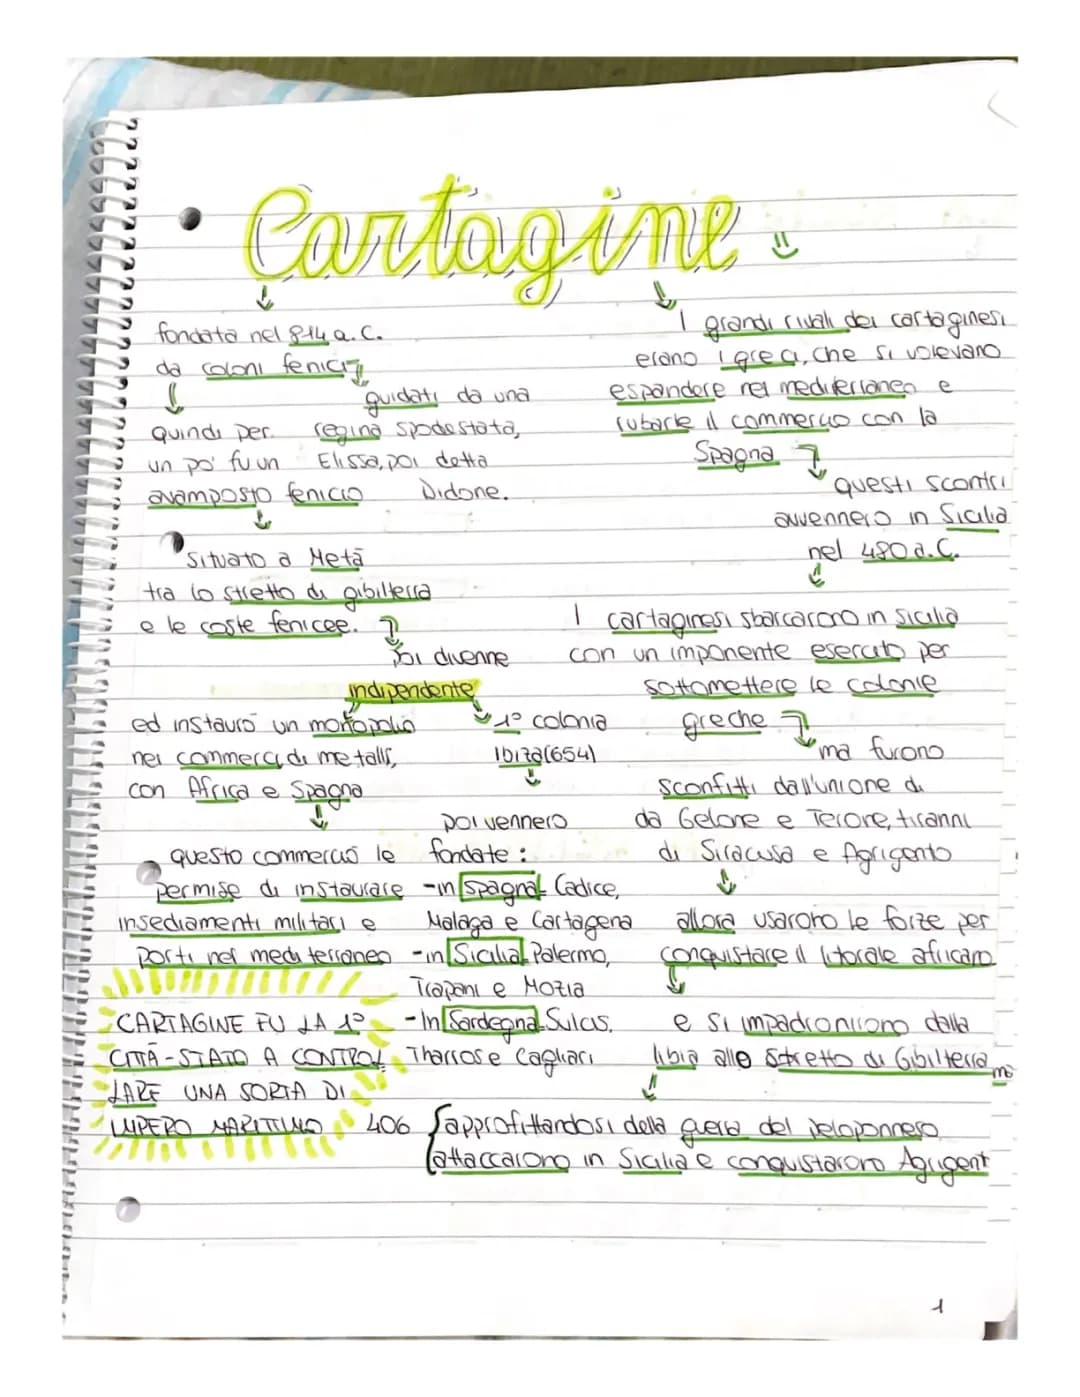 Cartagine
fondata nel 814 a.C.
da coloni fenici
guidati da una
regina spodestata,
Elissa, poi detta
Didone.
quindi per
un po' fu un
avamposto fenicio
situato a Metà
tra lo stretto di gibilterra
e le coste fenicee.
poi divenne
indipendente
ed instaurò un monopolio
nei commerci di metalli,
con Africa e Spagna
1° colonia
Ibiza(654)
questo commercio le
permise di instaurare
insediamenti militari e
porti nel mediterraneo
poi vennero
fondate:
-in Spagna Cadice,
Malaga e Cartagena
-in Sicilia Palermo,
Trapani e Mozia
-In Sardegna Sulcis,
Tharros e Cagliari
CARTAGINE FU LA 1°
CITTÀ-STATO A CONTROL
LARE UNA SORTA DI
IMPERO MARITTIMO
I grandi rivali dei cartaginesi
erano i greci, che si volevano
espandere nel mediterraneo e
rubarle il commercio con la
Spagna
questi scontri
avvennero in Sicilia
nel 480 a.C.
I cartaginesi sbarcarono in sicilia
con un imponente esercito per
sottomettere le colonie
greche
ma furono
sconfitti dall'unione di
da Gelone e Terone, tiranni
di Siracusa e Agrigento
allora usarono le forze per
conquistare il litorale africano
e si impadronirono dalla
libia allo stretto di Gibilterra
406 approfittandosi della guerra del peloponneso
attaccarono in Sicilia e conquistarono Agrigent
1